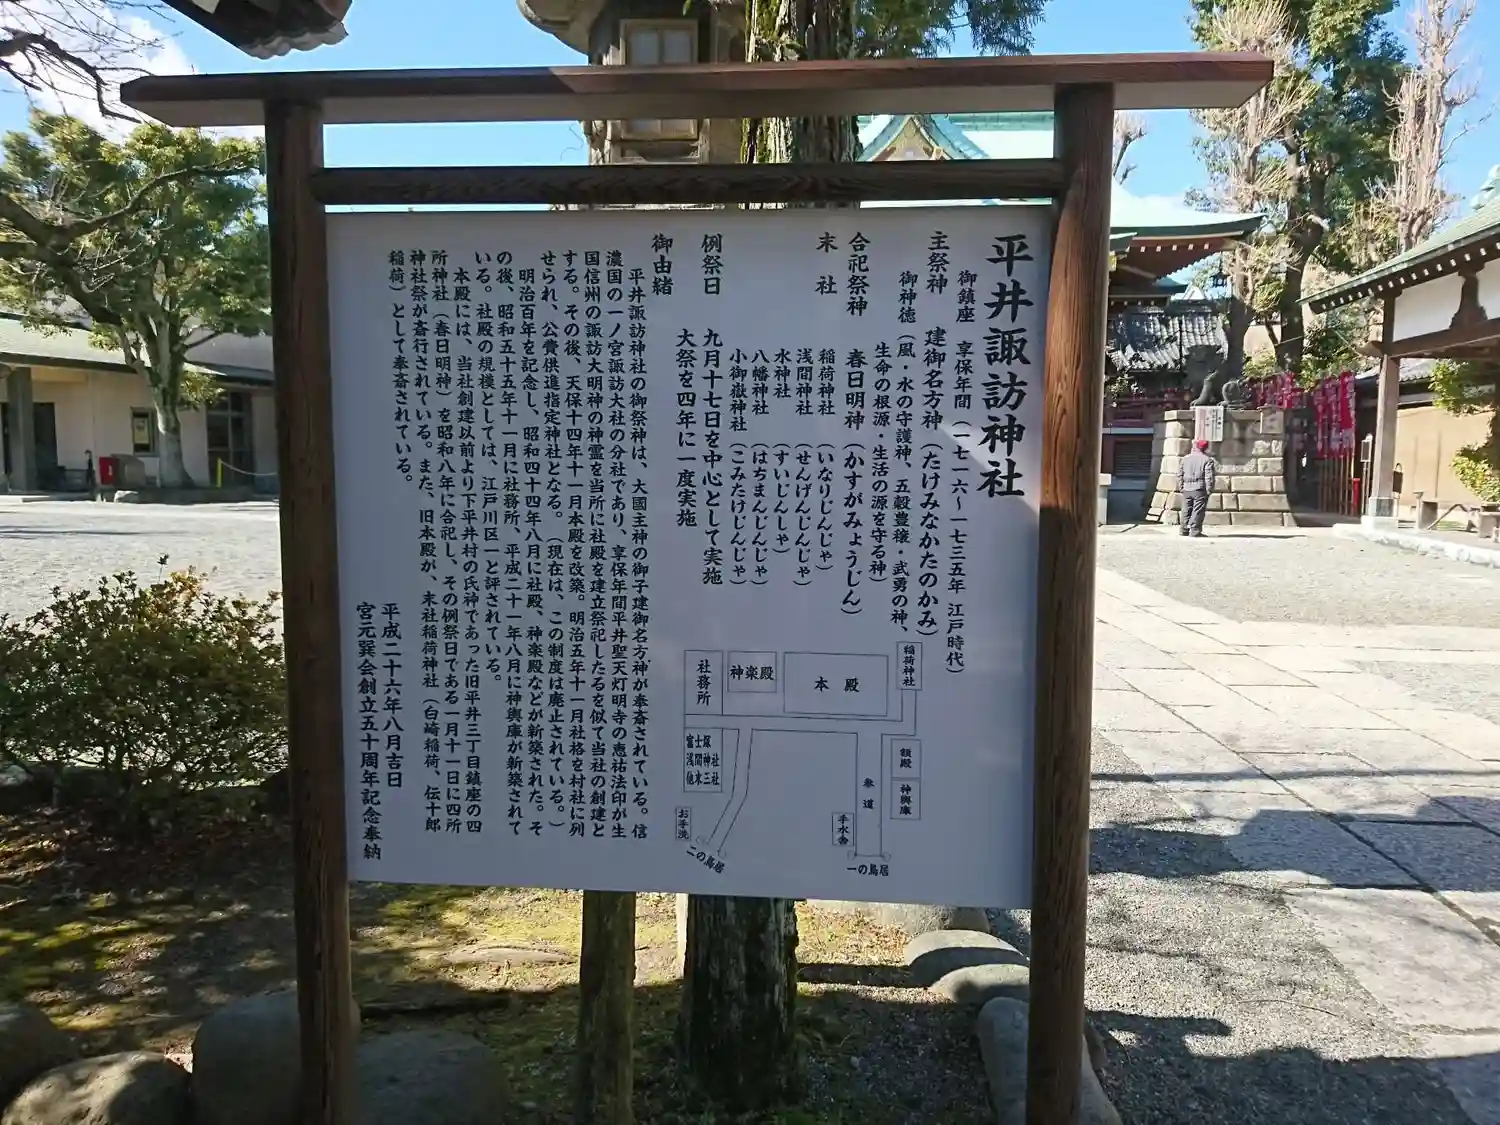 平井諏訪神社
御鎮座 享保年間(一七一六~一七三五年 江戸時代)
主祭神 建御名方神(たけみなかたのかみ)
御神徳(風・水の守護神、五穀豊穣・武勇の神、
生命の根源・生活の源を守る神)
合祀祭神 春日明神(かすがみょうじん)
末社 稲荷神社(いなりじんじゃ)
浅間神社(せんげんじんじゃ)
水神社(すいじんしゃ)
八幡神社(はちまんじんじゃ)
小御嶽神社(こみたけじんじゃ)
例祭日 九月十七日を中心として実施
大祭を四年に一度実施
御由緒
平井諏訪神社の御祭神は、大國主神の御子建御名方神が奉斎されている。信
濃国の一ノ宮諏訪大社の分社であり、享保年間平井聖天灯明寺の恵祐法印が生
国信州の諏訪大明神の神霊を当所に社殿を建立祭祀したるを似て当社の創建と
する。その後、天保十四年十一月本殿を改築。明治五年十一月社格を村社に列
せられ、公費供進指定神社となる。(現在は、この制度は廃止されている。)
明治百年を記念し、昭和四十四年八月に社殿、神楽殿などが新築された。そ
の後、昭和五十五年十一月に社務所、平成二十一年八月に神輿庫が新築されて
いる。社殿の規模としては、江戸川区一と評されている。
本殿には、当社創建以前より下平井村の氏神であった旧平井三丁目鎮座の四
所神社(春日明神)を昭和八年に合祀し、その例祭日である一月十一日に四所
神社祭が斎行されている。また、旧本殿が、末社稲荷神社(白崎稲荷、伝十郎
稲荷)として奉斎されている。
平成二十六年八月吉日
宮元巽会創立五十周年記念奉納
稲荷神社
本殿
神楽殿
社務所
額殿
神輿庫
富士塚
浅間神社
他末三社
参道
手水舎
お手洗
一の鳥居
二の鳥居